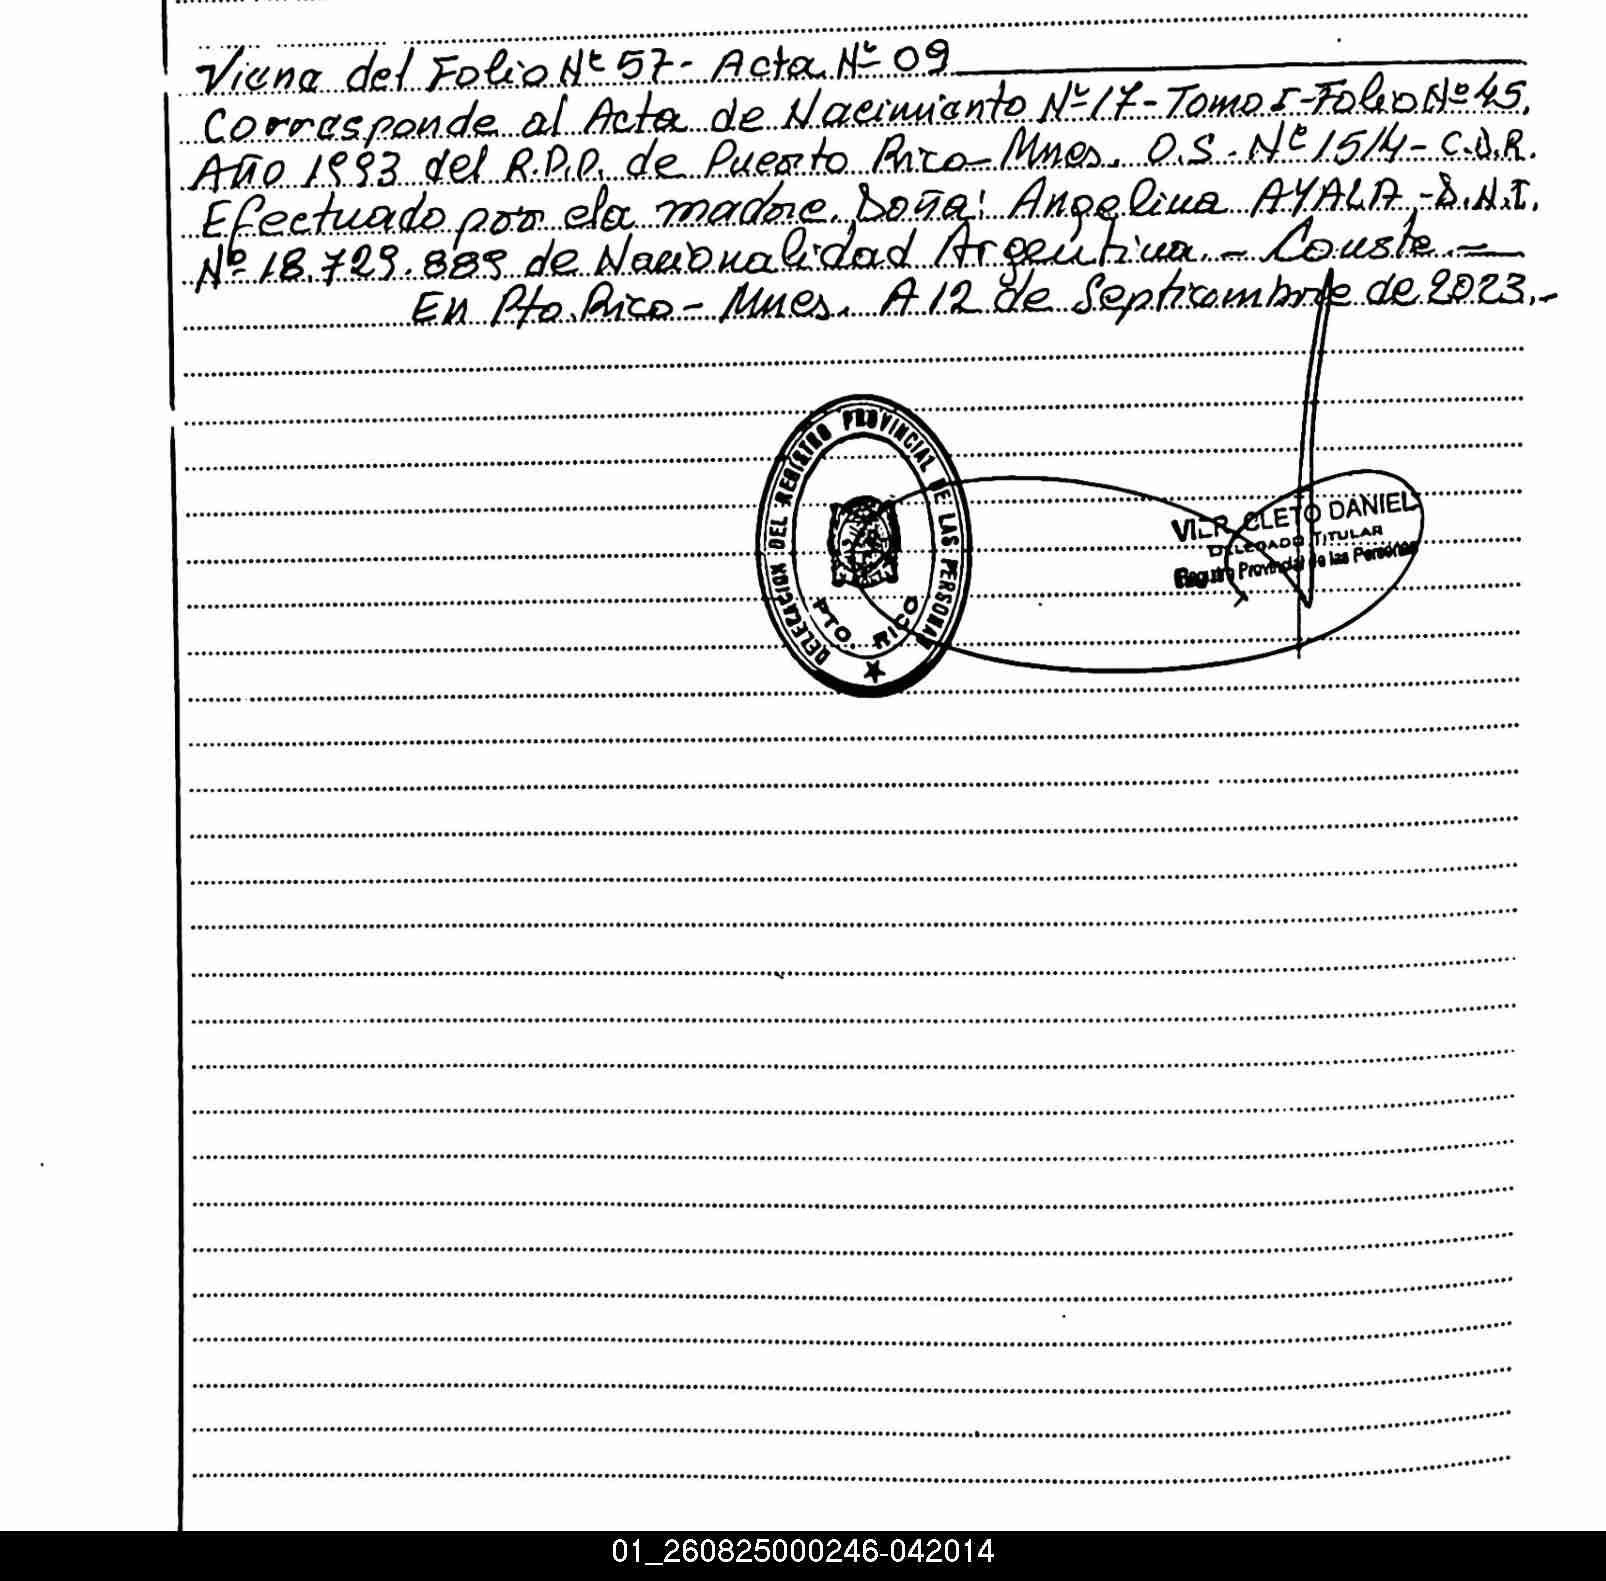 Viene del Folio Nº 57- Acta Nº 09
Corresponde al Acta de Nacimiento Nº 17-Tomo I-Folio Nº 45.
Año 1993 del R.P.P. de Puerto Rico-Mnes. O.S. Nº 1514- C.D.R.
Efectuado por ela madre. Doña: Angelina AYALA-D.N.I.
Nº 18.729.889 de Nacionalidad Argentina.- Conste.-
En Pto. Rico- Mnes. A 12 de Septiembre de 2023.-
DELEGACION DEL REGISTRO PROVINCIAL DE LAS PERSONAS
PTO. RICO
CLETO DANIEL
DELEGADO TITULAR
Registro Provincial de las Personas
01_260825000246-042014